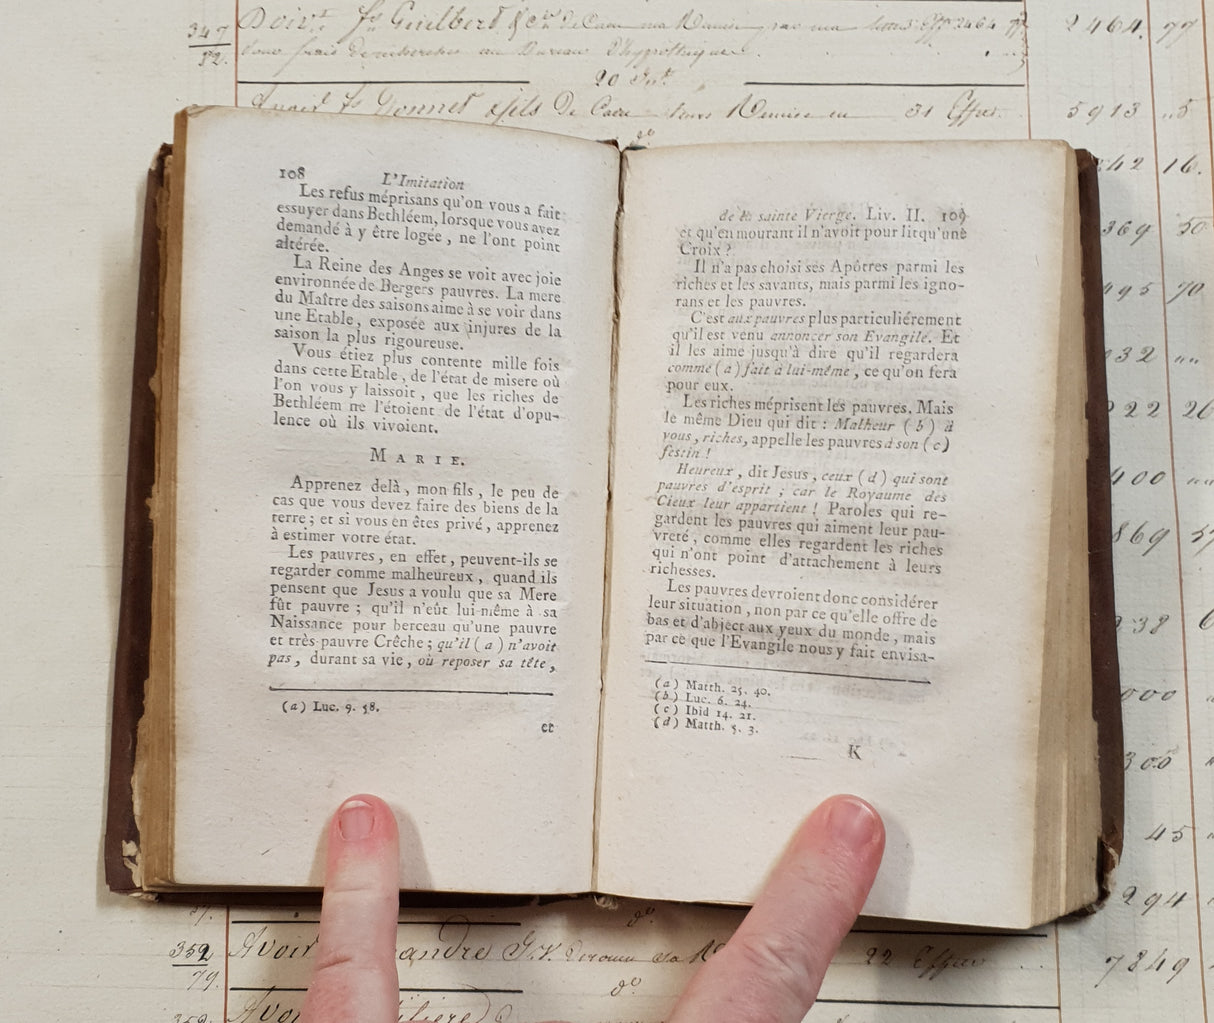 347
Doivt. fs Guilbert & Cie de Caen ma Remise 2464. 77
20
Avoir fs Monnet & fils De Caen leurs Remise en 31 Effets. 5913 "5
do
108 L'Imitation
Les refus méprisans qu'on vous a fait
essuyer dans Bethléem, lorsque vous avez
demandé à y être logée, ne l'ont point
altérée.
La Reine des Anges se voit avec joie
environnée de Bergers pauvres. La mere
du Maître des saisons aime à se voir dans
une Etable, exposée aux injures de la
saison la plus rigoureuse.
Vous étiez plus contente mille fois
dans cette Etable, de l'état de misere où
l'on vous y laissoit, que les riches de
Bethléem ne l'étoient de l'état d'opu-
lence où ils vivoient.
MARIE.
Apprenez delà, mon fils, le peu de
cas que vous devez faire des biens de la
terre; et si vous en êtes privé, apprenez
à estimer votre état.
Les pauvres, en effet, peuvent-ils se
regarder comme malheureux, quand ils
pensent que Jesus a voulu que sa Mere
fût pauvre; qu'il n'eût lui-même à sa
Naissance pour berceau qu'une pauvre
et très-pauvre Crêche; qu'il (a) n'avoit
pas, durant sa vie, où reposer sa tête,
(a) Luc. 9. 58.
et
de la sainte Vierge. Liv. II. 109
et qu'en mourant il n'avoit pour lit qu'une
Croix?
Il n'a pas choisi ses Apôtres parmi les
riches et les savants, mais parmi les igno-
rans et les pauvres.
C'est aux pauvres plus particuliérement
qu'il est venu annoncer son Evangile. Et
il les aime jusqu'à dire qu'il regardera
comme (a) fait à lui-même, ce qu'on fera
pour eux.
Les riches méprisent les pauvres. Mais
le même Dieu qui dit: Malheur (b) à
vous, riches, appelle les pauvres à son (c)
festin!
Heureux, dit Jesus, ceux (d) qui sont
pauvres d'esprit; car le Royaume des
Cieux leur appartient! Paroles qui re-
gardent les pauvres qui aiment leur pau-
vreté, comme elles regardent les riches
qui n'ont point d'attachement à leurs
richesses.
Les pauvres devroient donc considérer
leur situation, non par ce qu'elle offre de
bas et d'abject aux yeux du monde, mais
par ce que l'Evangile nous y fait envisa-
(a) Matth. 25. 40.
(b) Luc. 6. 24.
(c) Ibid 14. 21.
(d) Matth. 5. 3.
K
342 16.
369 50
495 70
222 26
400
869
238
000
300
45
294
do
352 Avoir 22 Effets 7849
79.
do